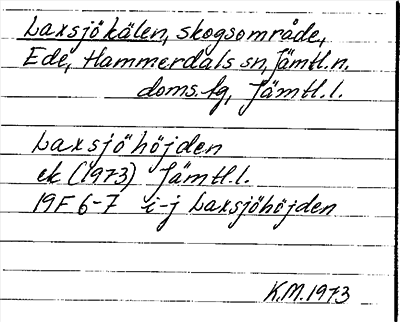 Laxsjökälen, skogsområde,
Ede, Hammerdals sn, Jämtl.n.
doms.lg, Jämtl.l.
Laxsjöhöjden
ek (1973) Jämtl.l.
19F 6-7 i-j Laxsjöhöjden
K.M. 1973